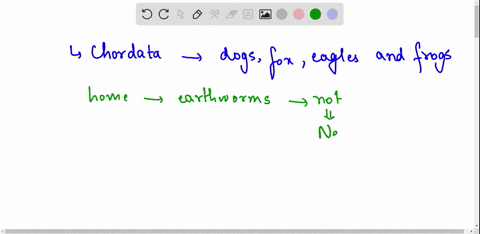 ↳ Chordata → dogs, fox, eagles and frogs
home → earthworms → not
⇓
No